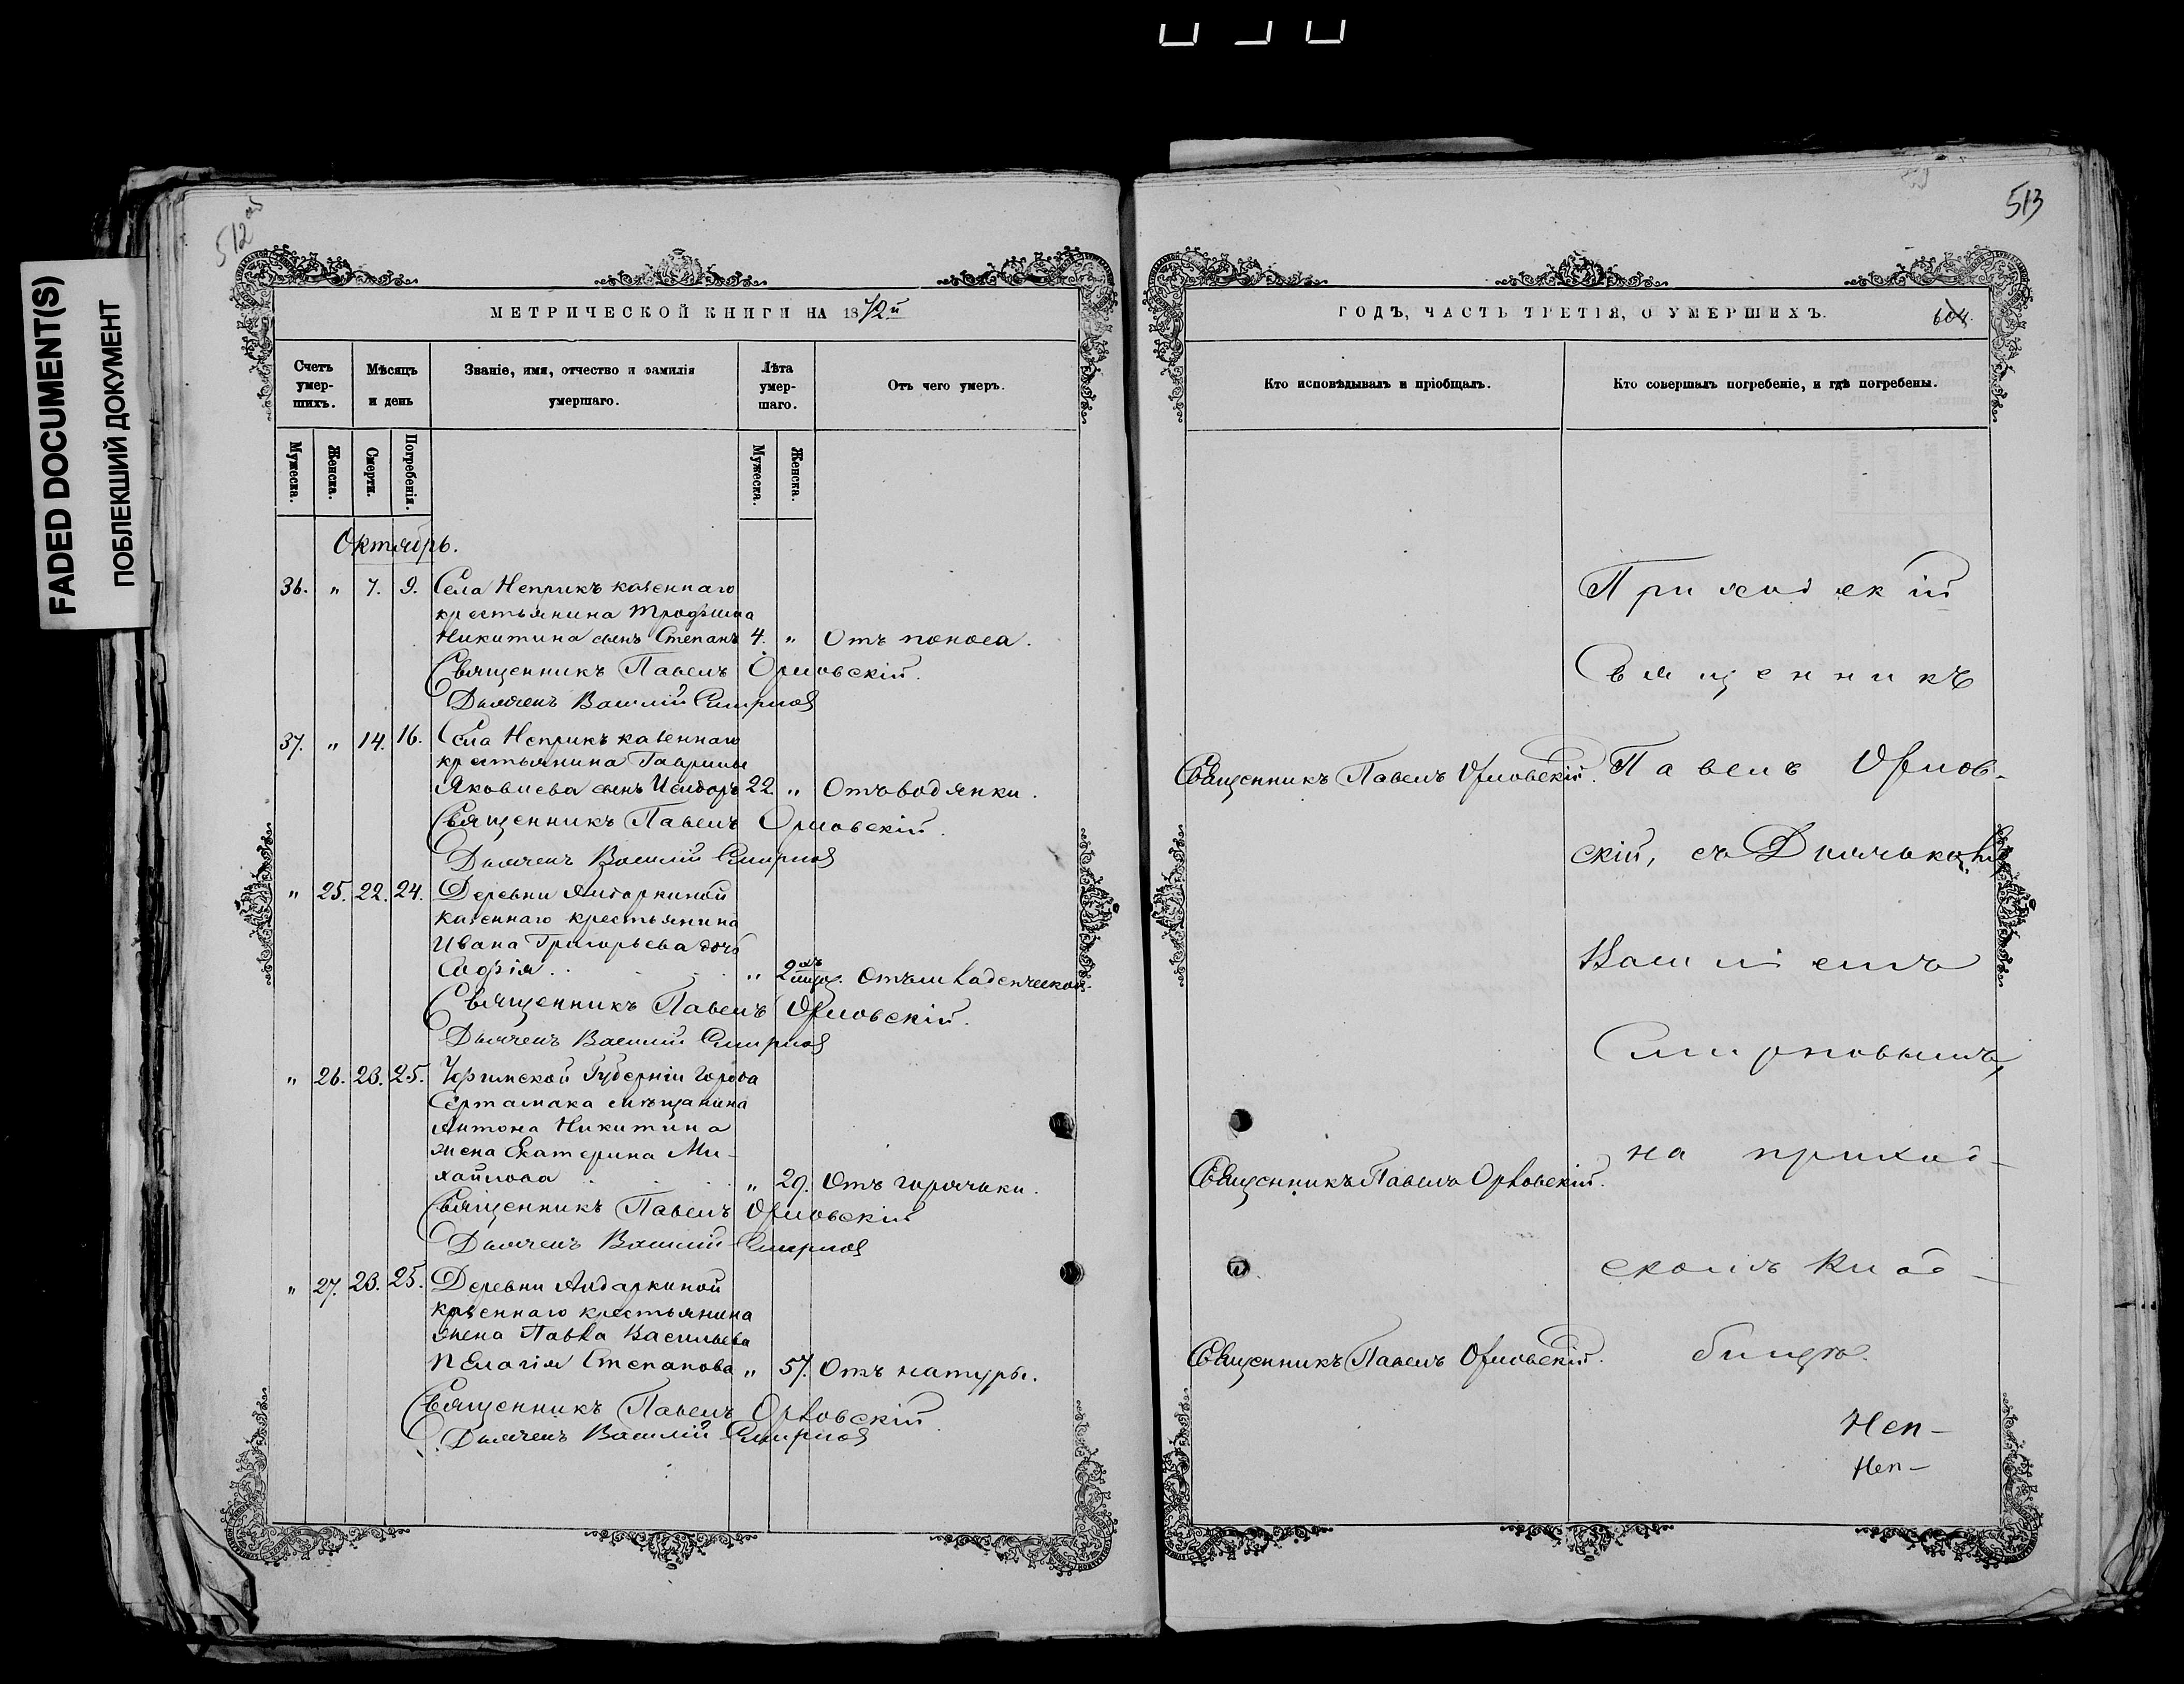 FADED DOCUMENT(S)
ПОБЛЕКШИЙ ДОКУМЕНТ
512 об
МЕТРИЧЕСКОЙ КНИГИ НА 1872й
Счетъ умер-шихъ.
Мѣсяцъ и день
Званіе, имя, отчество и фамилія умершаго.
Лѣта умер-шаго.
Отъ чего умеръ.
Мужеска.
Женска.
Смерти.
Погребенія.
Мужеска.
Женска.
Октябрь.
36. " 7. 9. Села Неприкъ казеннаго
крестьянина Трофима
Никитина сынъ Степанъ 4. " Отъ поноса.
Священникъ Павелъ Орловскій.
Дьячекъ Василій Смирнов
37. " 14. 16. Села Неприкъ казеннаго
крестьянина Гаврилы
Яковлева сынъ Исидоръ 22. " Отъ водянки.
Священникъ Павелъ Орловскій.
Дьячекъ Василій Смирнов
" 25. 22. 24. Деревни Андаркиной
казеннаго крестьянина
Ивана Григорьева дочь
Софія . . " 2 мѣс. Отъ младенческой.
Священникъ Павелъ Орловскій.
Дьячекъ Василій Смирнов
" 26. 23. 25. Уфимской Губерніи города
Стерлтамака мѣщанина
Антона Никитина
жена Екатерина Ми-
хайлова . . " 29. Отъ горячки.
Священникъ Павелъ Орловскій
Дьячекъ Василій Смирнов
" 27. 23. 25. Деревни Андаркиной
казеннаго крестьянина
жена Павла Васильева
Пелагія Степанова " 57. Отъ натуры.
Священникъ Павелъ Орловскій
Дьячекъ Василій Смирнов
513
ГОДЪ, ЧАСТЬ ТРЕТІЯ, О УМЕРШИХЪ.
604
Кто исповѣдывалъ и пріобщалъ.
Кто совершалъ погребеніе, и гдѣ погребены.
Приходскій
Священникъ
Священникъ Павелъ Орловскій. Павелъ Орлов-
скій, съ Дьячькомъ
Василіемъ
Смирновымъ,
на приход-
Священникъ Павелъ Орловскій.
скомъ клад-
Священникъ Павелъ Орловскій. бищѣ.
Неп-
Неп-